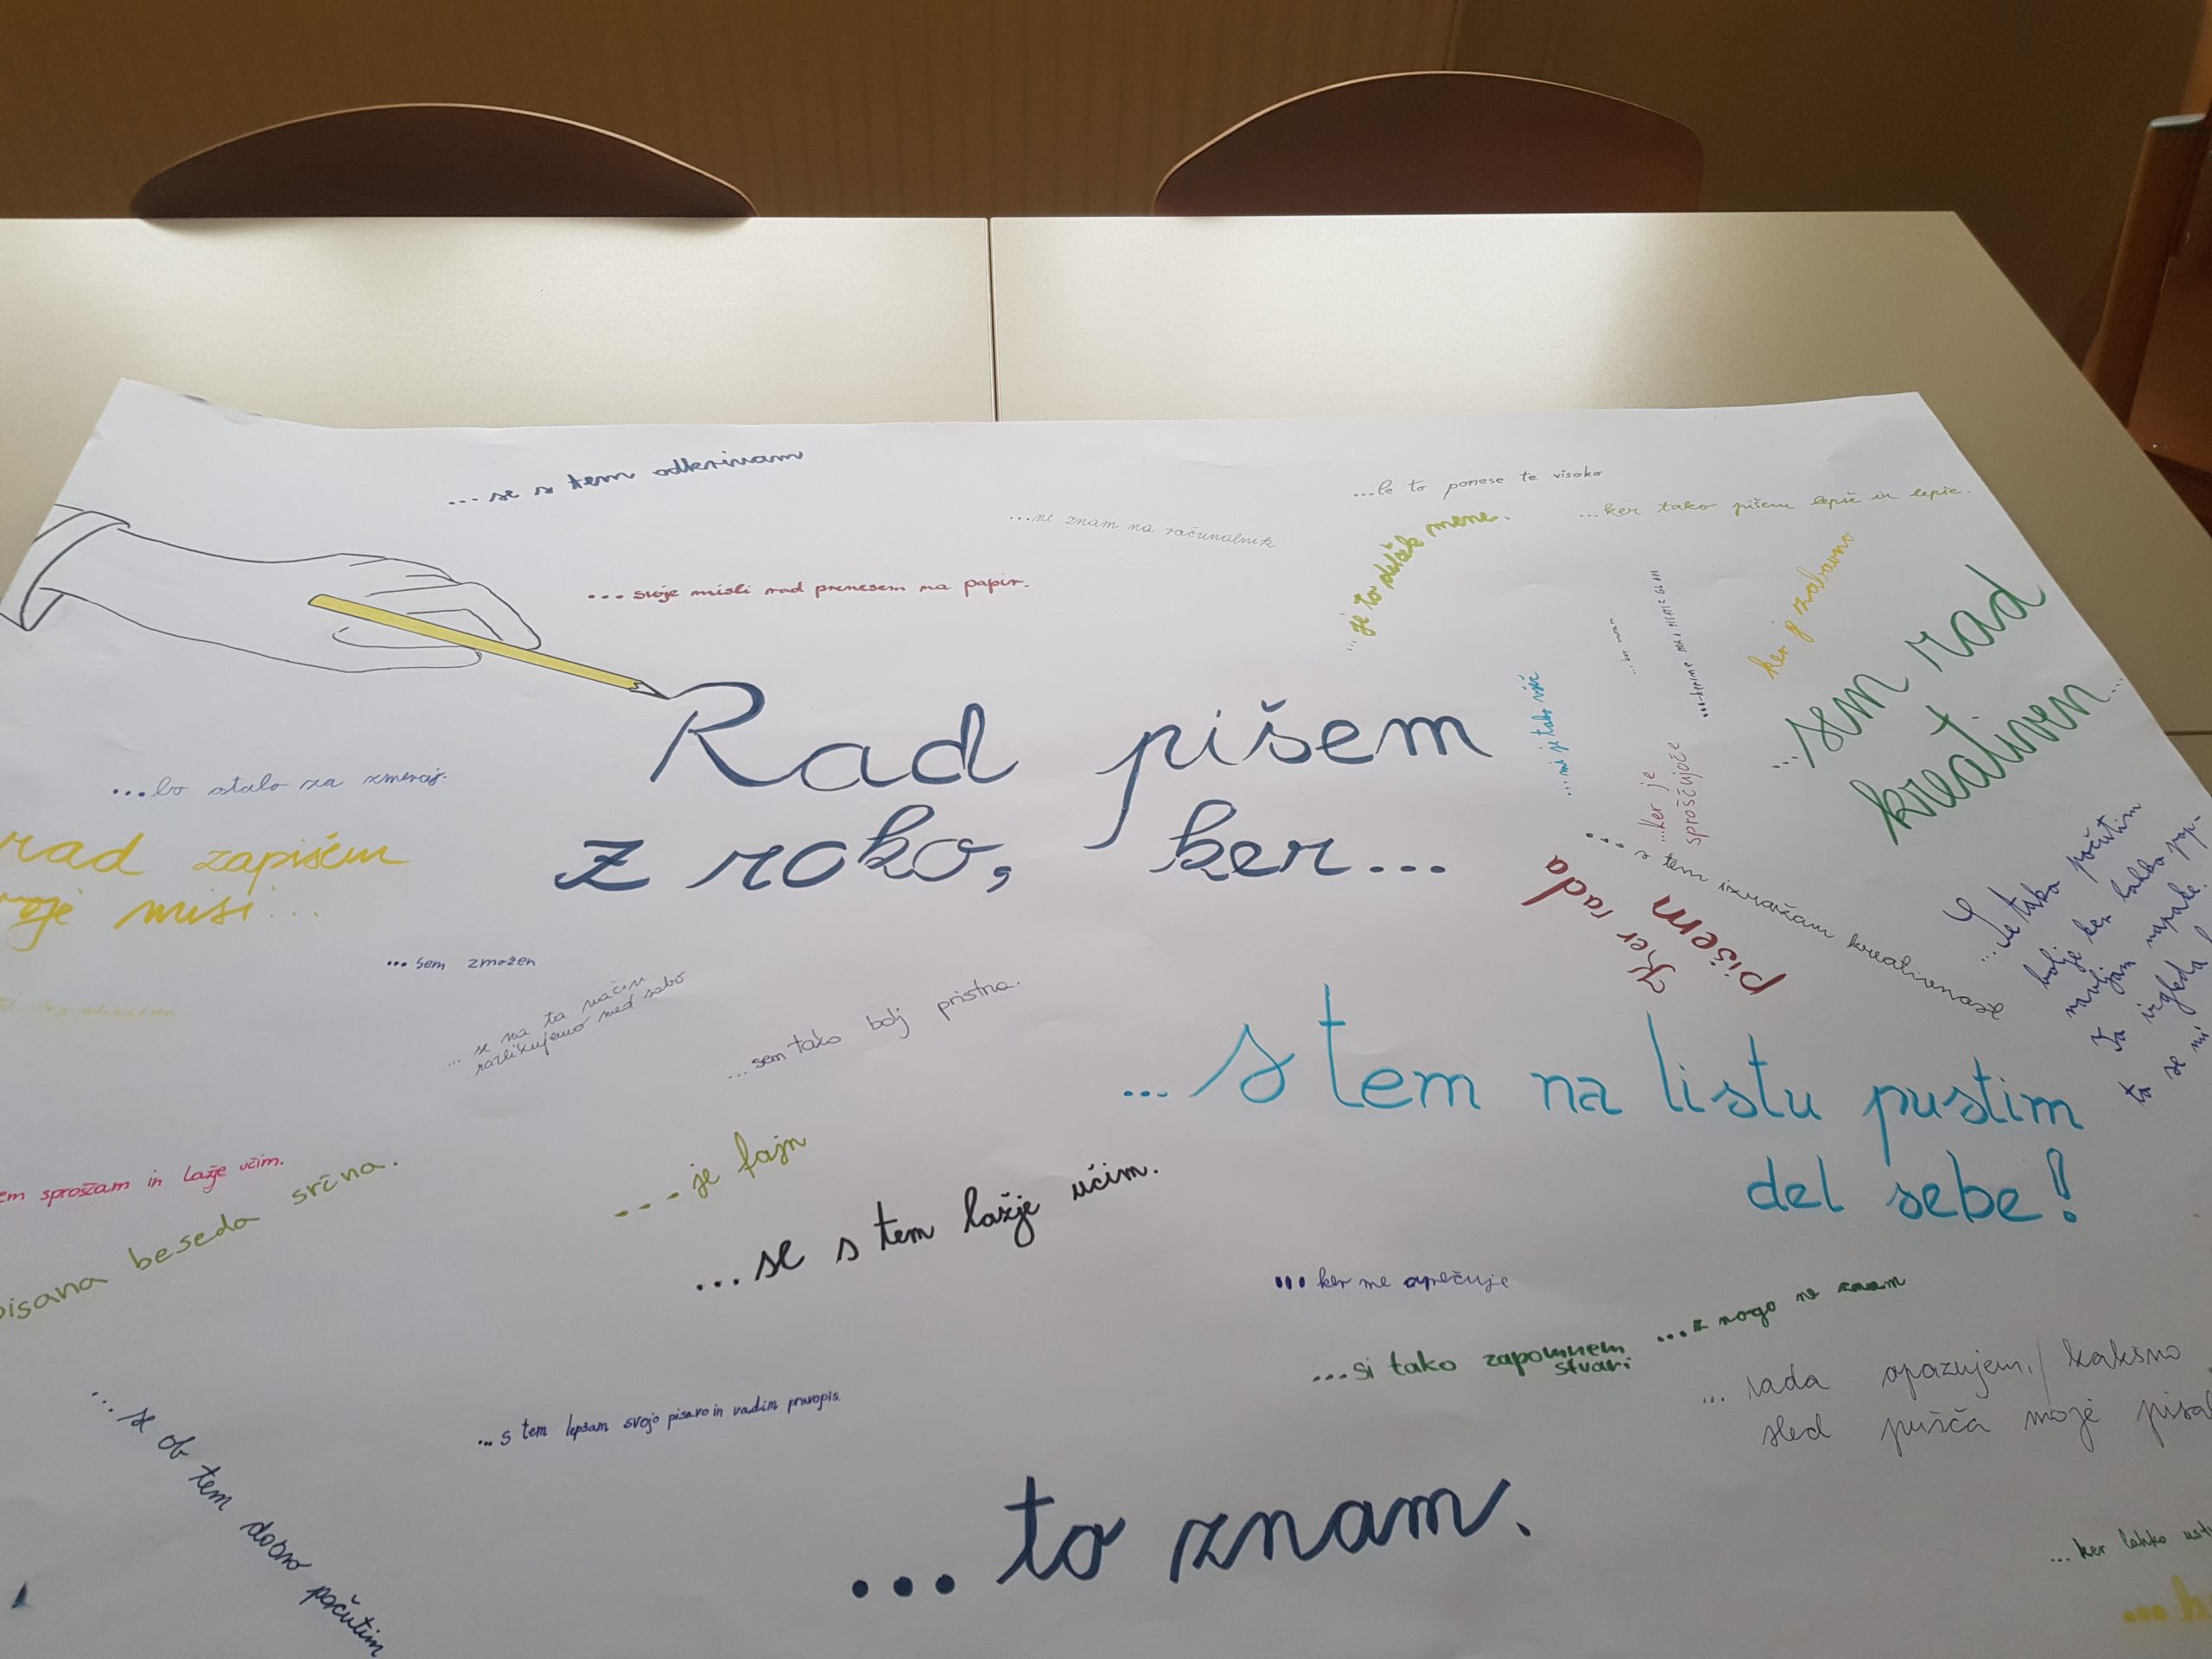 ...se s tem odkrivam
...le to ponese te visoko
...ker tako pišem lepše in lepše.
...ne znam na računalnik
...svoje misli rad prenesem na papir.
...je to del mene.
ker je zabavno
...sem rad
kreativen...
Rad pišem
z roko, ker...
...mi je tako všeč
...ker je
sproščujoče
...bo ostalo za zmeraj.
rad zapišem
misi...
Ker rada
pišem
...s tem izražam kreativnost
...se tako počutim
bolje ker lahko
napake.
izgleda
ta se mi
...sem zmožen
...se na ta način
razlikujemo med sabo
...sem tako bolj pristna.
...s tem na listu pustim
del sebe!
sproščam in lažje učim.
beseda srčna.
...je fajn
...se s tem lažje učim.
...ker me osrečuje
...z nogo ne znam
...si tako zapomnem
stvari
...rada opazujem, kakšno
sled pušča moje
...s tem lepšam svojo pisavo in vadim pravopis.
...se ob tem dobro počutim
...to znam.
...ker lahko